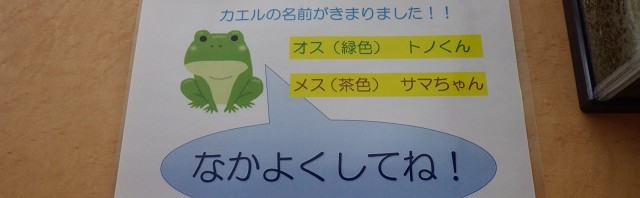 カエルの名前がきまりました！！
オス（緑色）　トノくん
メス（茶色）　サマちゃん
なかよくしてね！